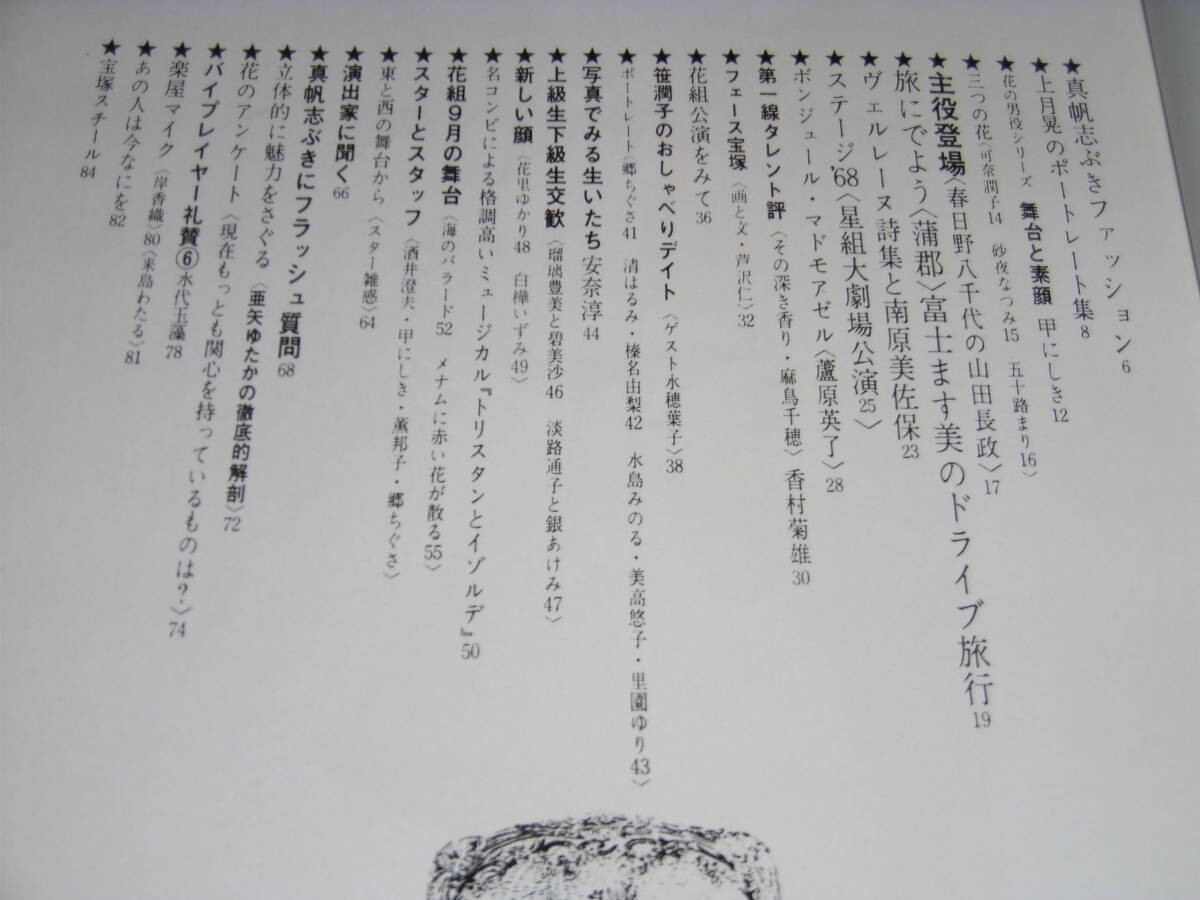 ★真帆志ぶきファッション 6
★上月晃のポートレート集 8
★花の男役シリーズ 舞台と素顔 甲にしき 12
★三つの花〈可奈潤子 14 砂夜なつみ 15 五十路まり 16〉
★主役登場〈春日野八千代の山田長政〉17
★旅にでよう〈蒲郡〉富士ます美のドライブ旅行 19
★ヴェルレーヌ詩集と南原美佐保 23
★ステージ'68〈星組大劇場公演 25〉
★ボンジュール・マドモアゼル〈蘆原英了〉28
★第一線タレント評〈その深き香り・麻鳥千穂〉香村菊雄 30
★フェース宝塚〈画と文・芦沢仁〉32
★花組公演をみて 36
★笹潤子のおしゃべりデイト〈ゲスト水穂葉子〉38
★ポートレート〈郷ちぐさ 41 清はるみ・榛名由梨 42 水島みのる・美高悠子・里園ゆり 43〉
★写真でみる生いたち 安奈淳 44
★上級生下級生交歓〈瑠璃豊美と碧美沙 46 淡路通子と銀あけみ 47〉
★新しい顔〈花里ゆかり 48 白樺いずみ 49〉
★名コンビによる格調高いミュージカル『トリスタンとイゾルデ』50
★花組9月の舞台〈海のバラード 52 メナムに赤い花が散る 55〉
★スターとスタッフ〈酒井澄夫・甲にしき・薫邦子・郷ちぐさ〉
★東と西の舞台から〈スター雑感〉64
★演出家に聞く 66
★真帆志ぶきにフラッシュ質問 68
★立体的に魅力をさぐる〈亜矢ゆたかの徹底的解剖〉72
★花のアンケート〈現在もっとも関心を持っているものは?〉74
★バイプレイヤー礼賛⑥水代玉藻 78
★楽屋マイク〈岸香織〉80〈来島わたる〉81
★あの人は今なにを 82
★宝塚スチール 84